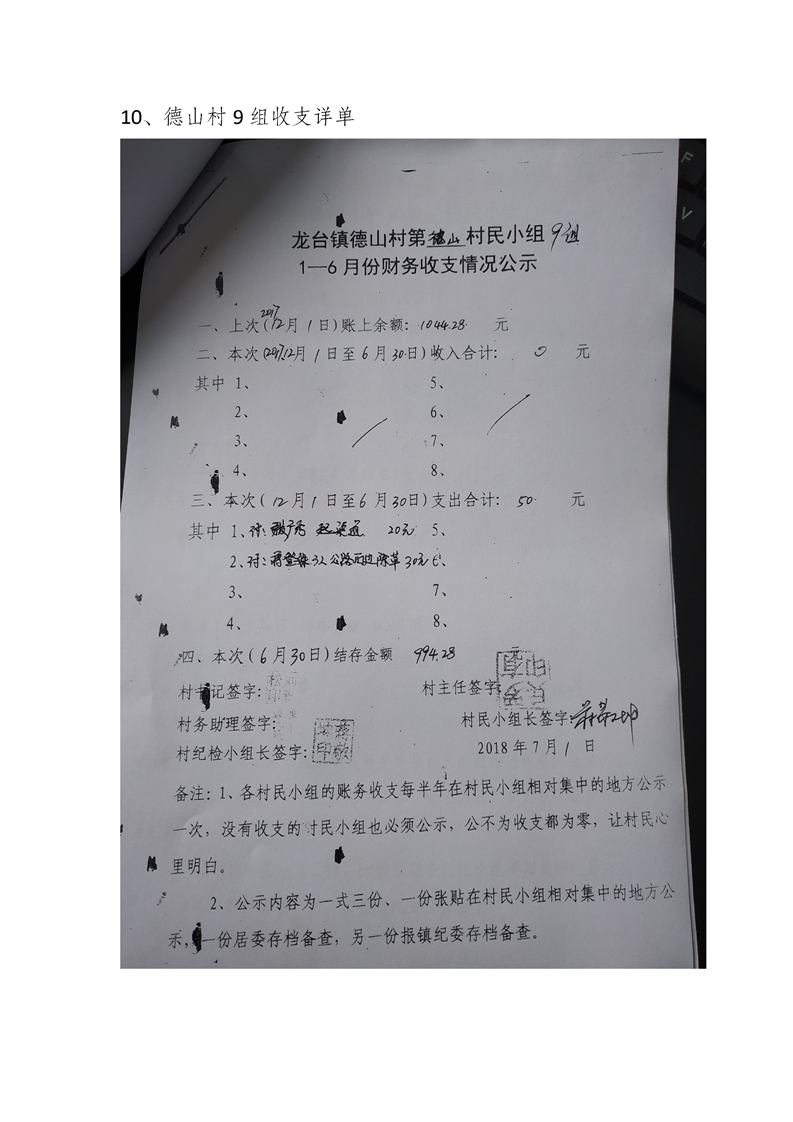 10、德山村 9 组收支详单
龙台镇德山村第德山村民小组9组
1—6月份财务收支情况公示
2017
一、上次(12月1日)账上余额:1044.28 元
二、本次(2017.12月1日至6月30日)收入合计: 0 元
其中 1、 5、
2、 6、
3、 7、
4、 8、
三、本次(12月1日至6月30日)支出合计: 50 元
其中 1、付: 20元 5、
2、付: 公路 除草30元 6、
3、 7、
4、 8、
四、本次(6月30日)结存金额 994.28 元
村书记签字: 村主任签字:
村务助理签字: 村民小组长签字:
村纪检小组长签字: 2018年7月1日
备注:1、各村民小组的账务收支每半年在村民小组相对集中的地方公示
一次,没有收支的村民小组也必须公示,公不为收支都为零,让村民心
里明白。
2、公示内容为一式三份、一份张贴在村民小组相对集中的地方公
示,一份居委存档备查,另一份报镇纪委存档备查。
F
V